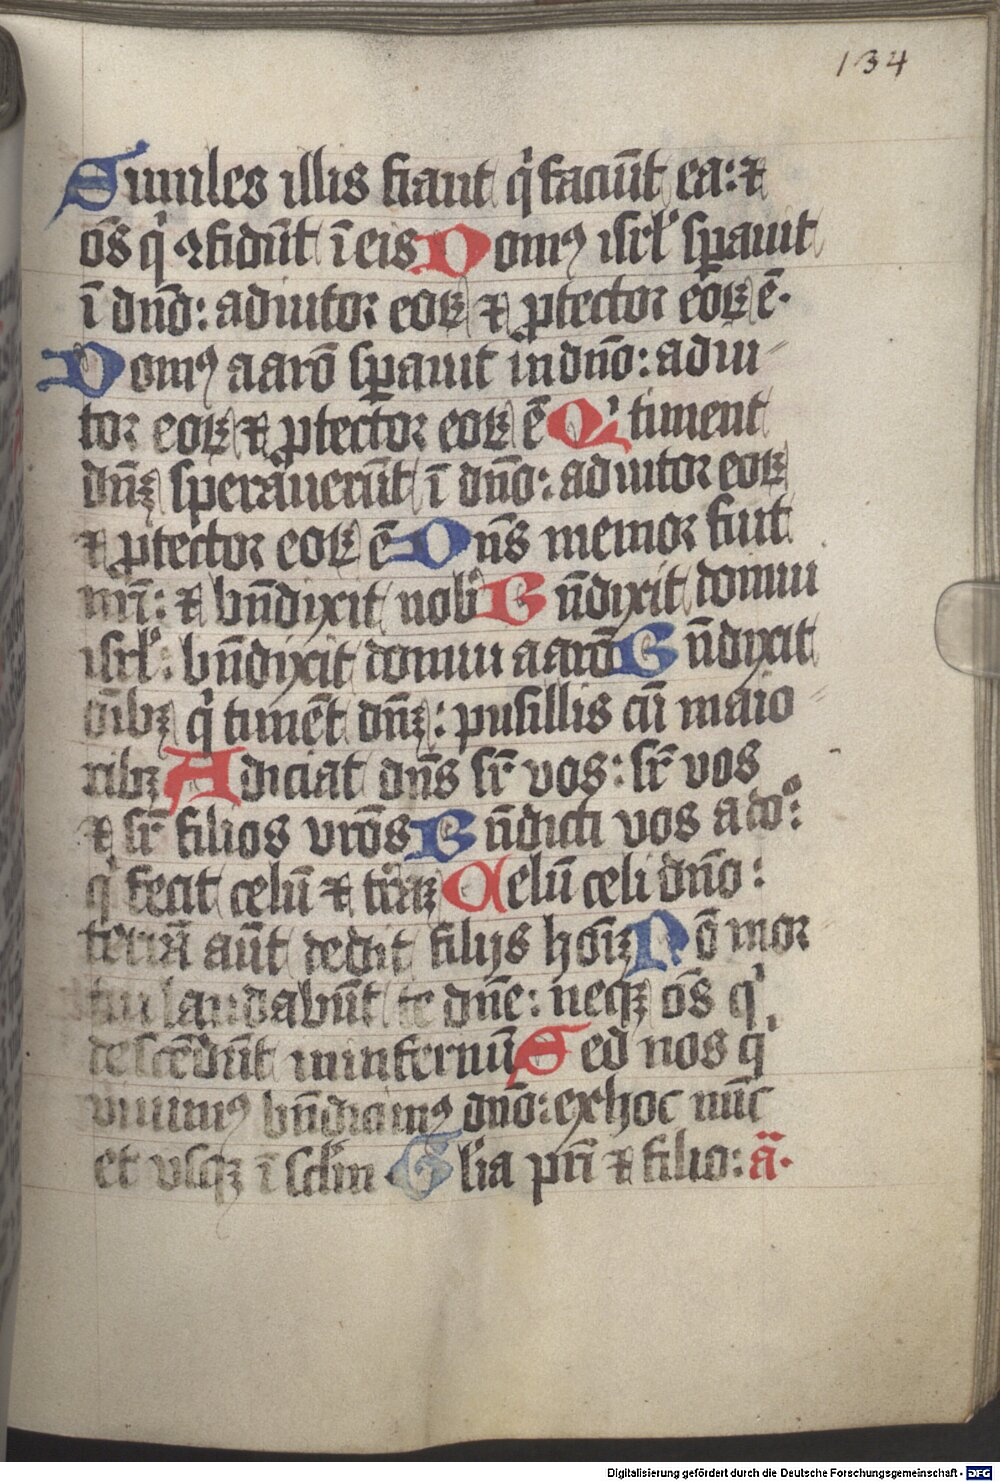 134
Similes illis fiant q̇ faciūt ea: ⁊
oēs q̇ ꝯfidūt ī eis Domꝰ isrl̓ sꝑauit
ī dn̄o: adiutor eoꝝ ⁊ ꝓtector eoꝝ ē·
Domꝰ aarō sꝑauit in dn̄o: adiu⸗
tor eoꝝ ⁊ ꝓtector eoꝝ ē Q̇ timent
dn̄ꝫ sperauerūt ī dn̄o: adiutor eoꝝ
⁊ ꝓtector eoꝝ ē Dn̄s memor fuit
nr̄i: ⁊ bn̄dixit nob̓ Bn̄dixit domui
isrl̓: bn̄dixit domui aarō Bn̄dixit
oībꝫ q̇ timēt dn̄ꝫ: pusillis cū maio⸗
ribꝫ Adiciat dn̄s sr̄ vos: sr̄ vos
⁊ sr̄ filios vr̄os Bn̄dicti vos a do͛:
q̇ fecit celū ⁊ tr̄aꝫ Celū celi dn̄o:
terrā aūt dedit filijs hoīꝫ Nō mor
tui laudabūt te dn̄e: neqꝫ oēs q̇
descēdūt in infernū Sed nos q̇
viuimꝰ bn̄dicimꝰ dn̄o: ex hoc nūc
et vsqꝫ ī sclm̄ · Gl̄ia pr̄i ⁊ filio: ā·
Digitalisierung gefördert durch die Deutsche Forschungsgemeinschaft - DFG